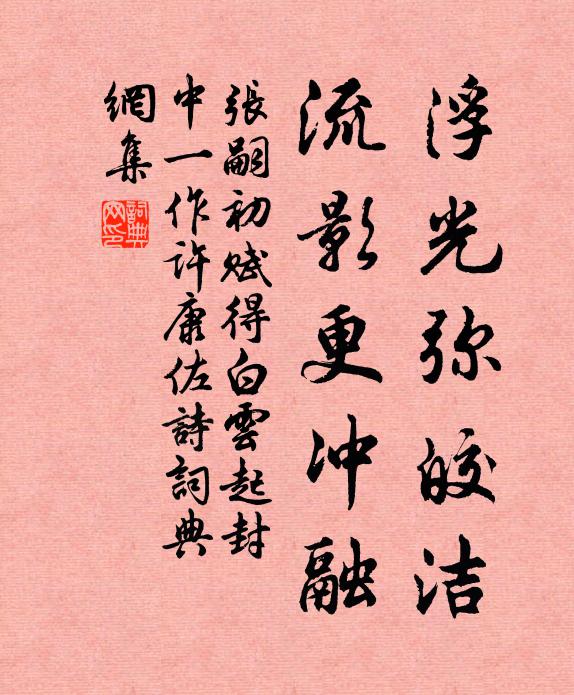 浮光弥皎洁
流影更冲融
張嗣初賦得白雲起封
中一作許康佐詩詞典
網集
詞典
网印